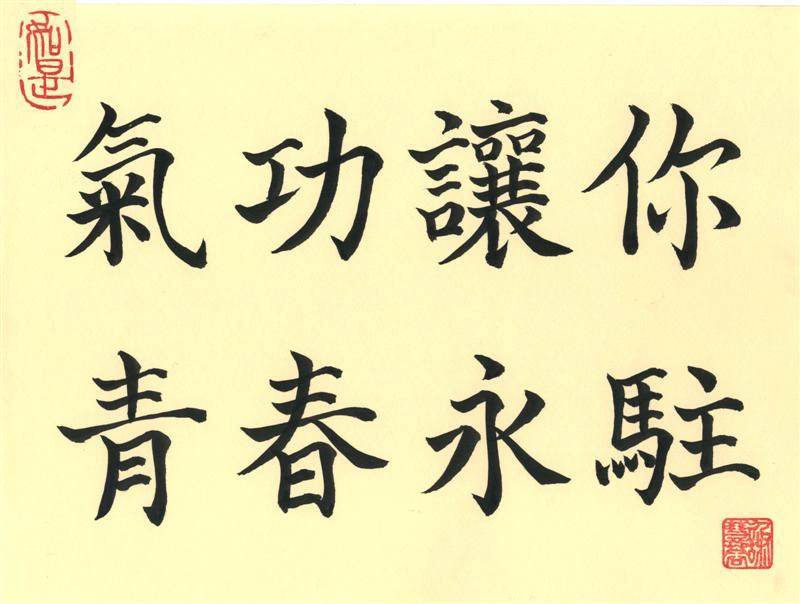 氣功讓你
青春永駐